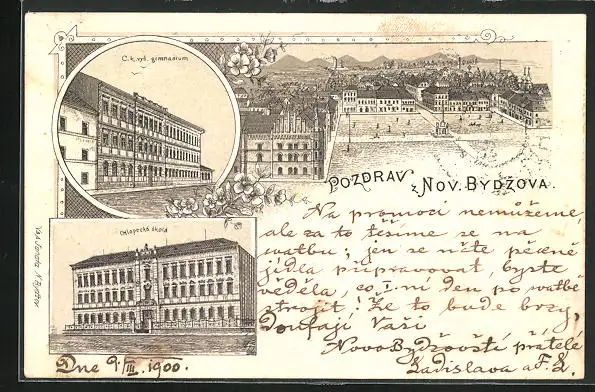 C. k. vyš. gimnasium
POZDRAV z NOV. BYDŽOVA.
Chlapecká škola
Na promoci nemůžeme,
ale za to těšíme se na
svatbu; jen se račte pěkně
jídla připravovat, byste
věděla, co i ni den po svatbě
strojit! Že to bude brzy,
doufají Vaši
Novo Bydžovští přátelé
Ladislava a F. L.
Dne 9/III. 1900.